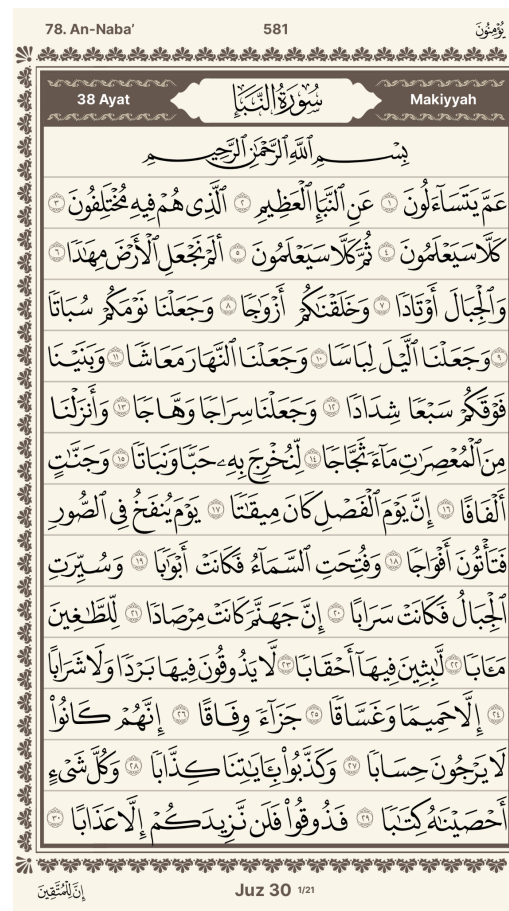 78. An-Naba’ 581 يُؤْمِنُونَ
38 Ayat سُورَةُ النَّبَإِ Makiyyah
بِسْمِ ٱللَّهِ ٱلرَّحْمَٰنِ ٱلرَّحِيمِ
عَمَّ يَتَسَآءَلُونَ ١ عَنِ ٱلنَّبَإِ ٱلْعَظِيمِ ٢ ٱلَّذِى هُمْ فِيهِ مُخْتَلِفُونَ ٣
كَلَّا سَيَعْلَمُونَ ٤ ثُمَّ كَلَّا سَيَعْلَمُونَ ٥ أَلَمْ نَجْعَلِ ٱلْأَرْضَ مِهَٰدًا ٦
وَٱلْجِبَالَ أَوْتَادًا ٧ وَخَلَقْنَٰكُمْ أَزْوَٰجًا ٨ وَجَعَلْنَا نَوْمَكُمْ سُبَاتًا
٩ وَجَعَلْنَا ٱلَّيْلَ لِبَاسًا ١٠ وَجَعَلْنَا ٱلنَّهَارَ مَعَاشًا ١١ وَبَنَيْنَا
فَوْقَكُمْ سَبْعًا شِدَادًا ١٢ وَجَعَلْنَا سِرَاجًا وَهَّاجًا ١٣ وَأَنزَلْنَا
مِنَ ٱلْمُعْصِرَٰتِ مَآءً ثَجَّاجًا ١٤ لِّنُخْرِجَ بِهِۦ حَبًّا وَنَبَاتًا ١٥ وَجَنَّٰتٍ
أَلْفَافًا ١٦ إِنَّ يَوْمَ ٱلْفَصْلِ كَانَ مِيقَٰتًا ١٧ يَوْمَ يُنفَخُ فِى ٱلصُّورِ
فَتَأْتُونَ أَفْوَاجًا ١٨ وَفُتِحَتِ ٱلسَّمَآءُ فَكَانَتْ أَبْوَٰبًا ١٩ وَسُيِّرَتِ
ٱلْجِبَالُ فَكَانَتْ سَرَابًا ٢٠ إِنَّ جَهَنَّمَ كَانَتْ مِرْصَادًا ٢١ لِّلطَّٰغِينَ
مَـَٔابًا ٢٢ لَّٰبِثِينَ فِيهَآ أَحْقَابًا ٢٣ لَّا يَذُوقُونَ فِيهَا بَرْدًا وَلَا شَرَابًا
٢٤ إِلَّا حَمِيمًا وَغَسَّاقًا ٢٥ جَزَآءً وِفَاقًا ٢٦ إِنَّهُمْ كَانُوا۟
لَا يَرْجُونَ حِسَابًا ٢٧ وَكَذَّبُوا۟ بِـَٔايَٰتِنَا كِذَّابًا ٢٨ وَكُلَّ شَىْءٍ
أَحْصَيْنَٰهُ كِتَٰبًا ٢٩ فَذُوقُوا۟ فَلَن نَّزِيدَكُمْ إِلَّا عَذَابًا ٣٠
إِنَّ لِلْمُتَّقِينَ Juz 30 1/21